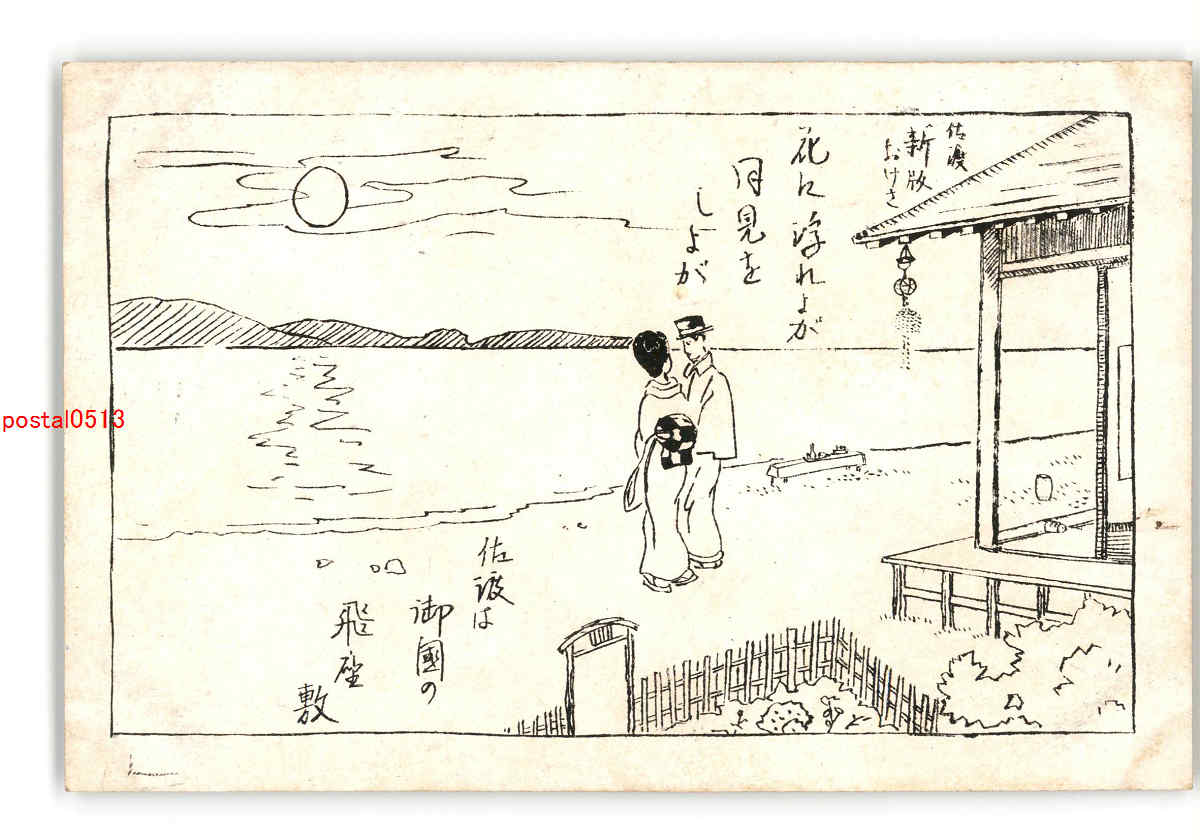 佐渡
新版
おけさ
花に浮れよが
月見を
しよが
佐渡は
御國の
飛座
敷
postal0513